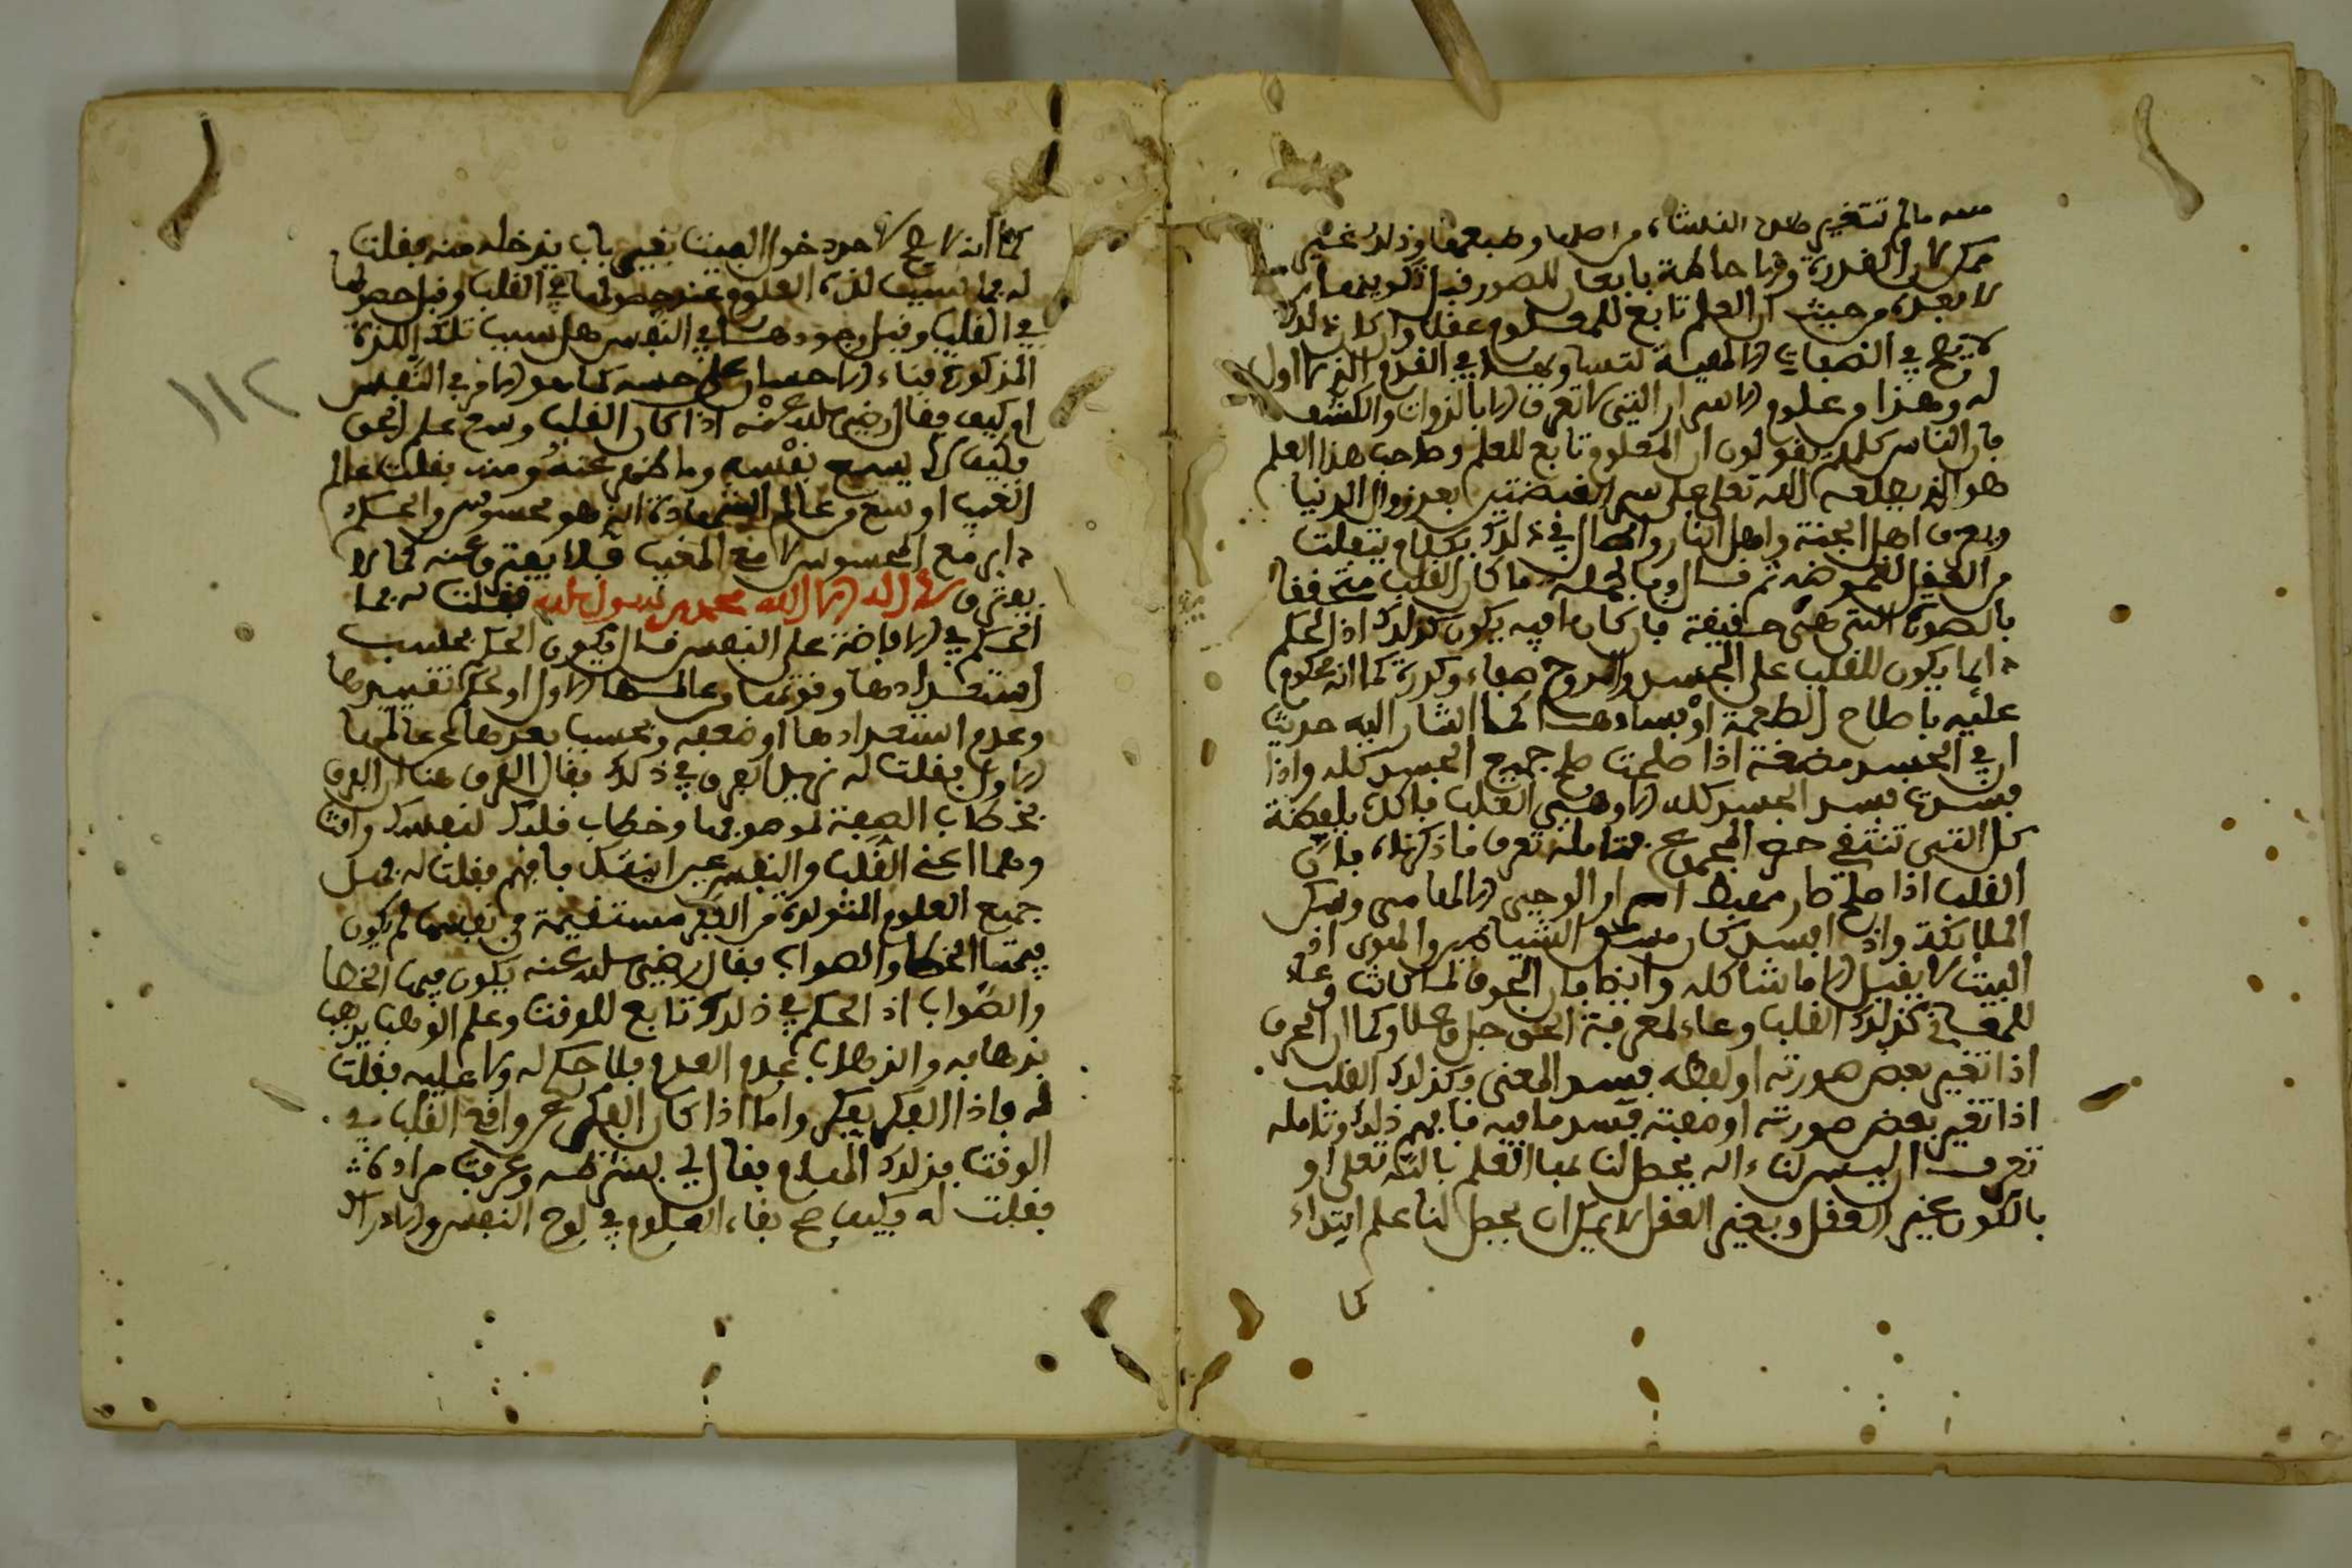 منه ما لم تتغير تلك النشاة من اصلها وطبعها وذلك غير
ممكن لان القدرة والاحاطة بابعاد للصور قبل تكوينها
لا بعده من حيث ان العلم تابع للمعلوم عقلا وان كان ذلك
لا يصح في الصفات الالهية لتساويها في القدم الذي لا اول
له وهذا من علوم الاسرار التي لا تعرف الا بالذوات والكشف
فان الناس كلهم يقولون ان المعلوم تابع للعلم وصاحب هذا العلم
هو الذي يطلعه الله تعلى على سر القبضتين بعد زوال الدنيا
ويعرف اهل الجنة واهل النار واطال في ذلك بكلام يتفلت
من العقل لغموضه ثم قال وبالجملة ما كان القلب متحققا
بالصورة التي هي حقيقة فان كان فيه يكون كذلك اذ الحكم
دايما يكون للقلب على الجسد والروح صفاء وكدرة كما انه محكوم
عليه باصلاح الطعمة او فسادها كما اشار اليه حديث
ان في الجسد مضغة اذا صلحت صلح جميع الجسد كله واذا
فسدت فسد الجسد كله الا وهي القلب فاكل بلعضة
كل التي تنتفي حق المجموع فتامله تعرف ما ذكرناه فان
القلب اذا صلح كان مهبط اسرار الوحي الالهامي ومسكن
الملايكة واذا فسد كان مسكن الشياطين والهوى اذ
البيت لا يقبل الا ما شاكله وايضا فان الحروف لما كانت وعاء
للمعاني كذلك القلب وعاء لمعرفة الحق جل وعلا وكما ان الحرف
اذا تغير بعض صورته او لفظه فسد المعنى وكذلك القلب
اذا تغير بعض صورته او صفته فسد ما فيه فافهم ذلك وتامله
تعرف اذ ليس لنا ءالة يحصل لنا بها العلم بالله تعلى او
بالكون غير العقل وبغير العقل لا يمكن ان يحصل لنا علم ابتداء
كما
كما انه لا يصح لاحد دخول البيت بغير باب يدخله منه فقلت
له فما سبب لذة العلوم عند حصولها في القلب وقبل حصولها
في القلب وقبل وجودها في النفس هل سبب تلك اللذة
المذكورة فناء الاحساس على حسه كما هو الامر في النفس
او كيف فقال رضي الله عنه اذا كان القلب وسع علم الحق
فكيف لا يسع نفسه وما ظهر عنه ومنه فقلت عالم
الغيب اوسع من عالم الشهادة الذي هو محسوس والحكم
داير مع المحسوس لا مع المغيب فلا يفترق عنه كما لا
يفترق لا اله الا الله محمد رسول الله فقلت له فما
الحكم في الافاضة على النفس قال يكون الحكم بحسب
استعدادها وقوتها وعالمها الاول او بحكم تقييدها
وعدم استعدادها او ضعفه وبحسب بعدها عن عالمها
الاول فقلت له زيد الفرق في ذلك فقال الفرق هنا ان الفرق
بخطاب الصفة لموصوفها وخطاب قلبك لنفسك وانت
وهما اعني القلب والنفس عين انيتك فافهم فقلت له فهل
جميع العلوم المتولدة من الفكر مستقيمة في نفسها ام يكون
فيها الخطا والصواب فقال رضي الله عنه يكون فيها الخطا
والصواب اذ الحكم في ذلك تابع للوقت وعلم الوهب يذهب
بذهابه والذهاب عدم العدم فلا حكم له ولا عليه فقلت
له فاذا الفكر بفكر واما اذا كان الفكر عن واقع القلب في
الوقت فذلك الهام فقال لي بشرطه وعرفت مراده
فقلت له فكيف صح بقاء العلوم في لوح النفس والادراك
١١٢